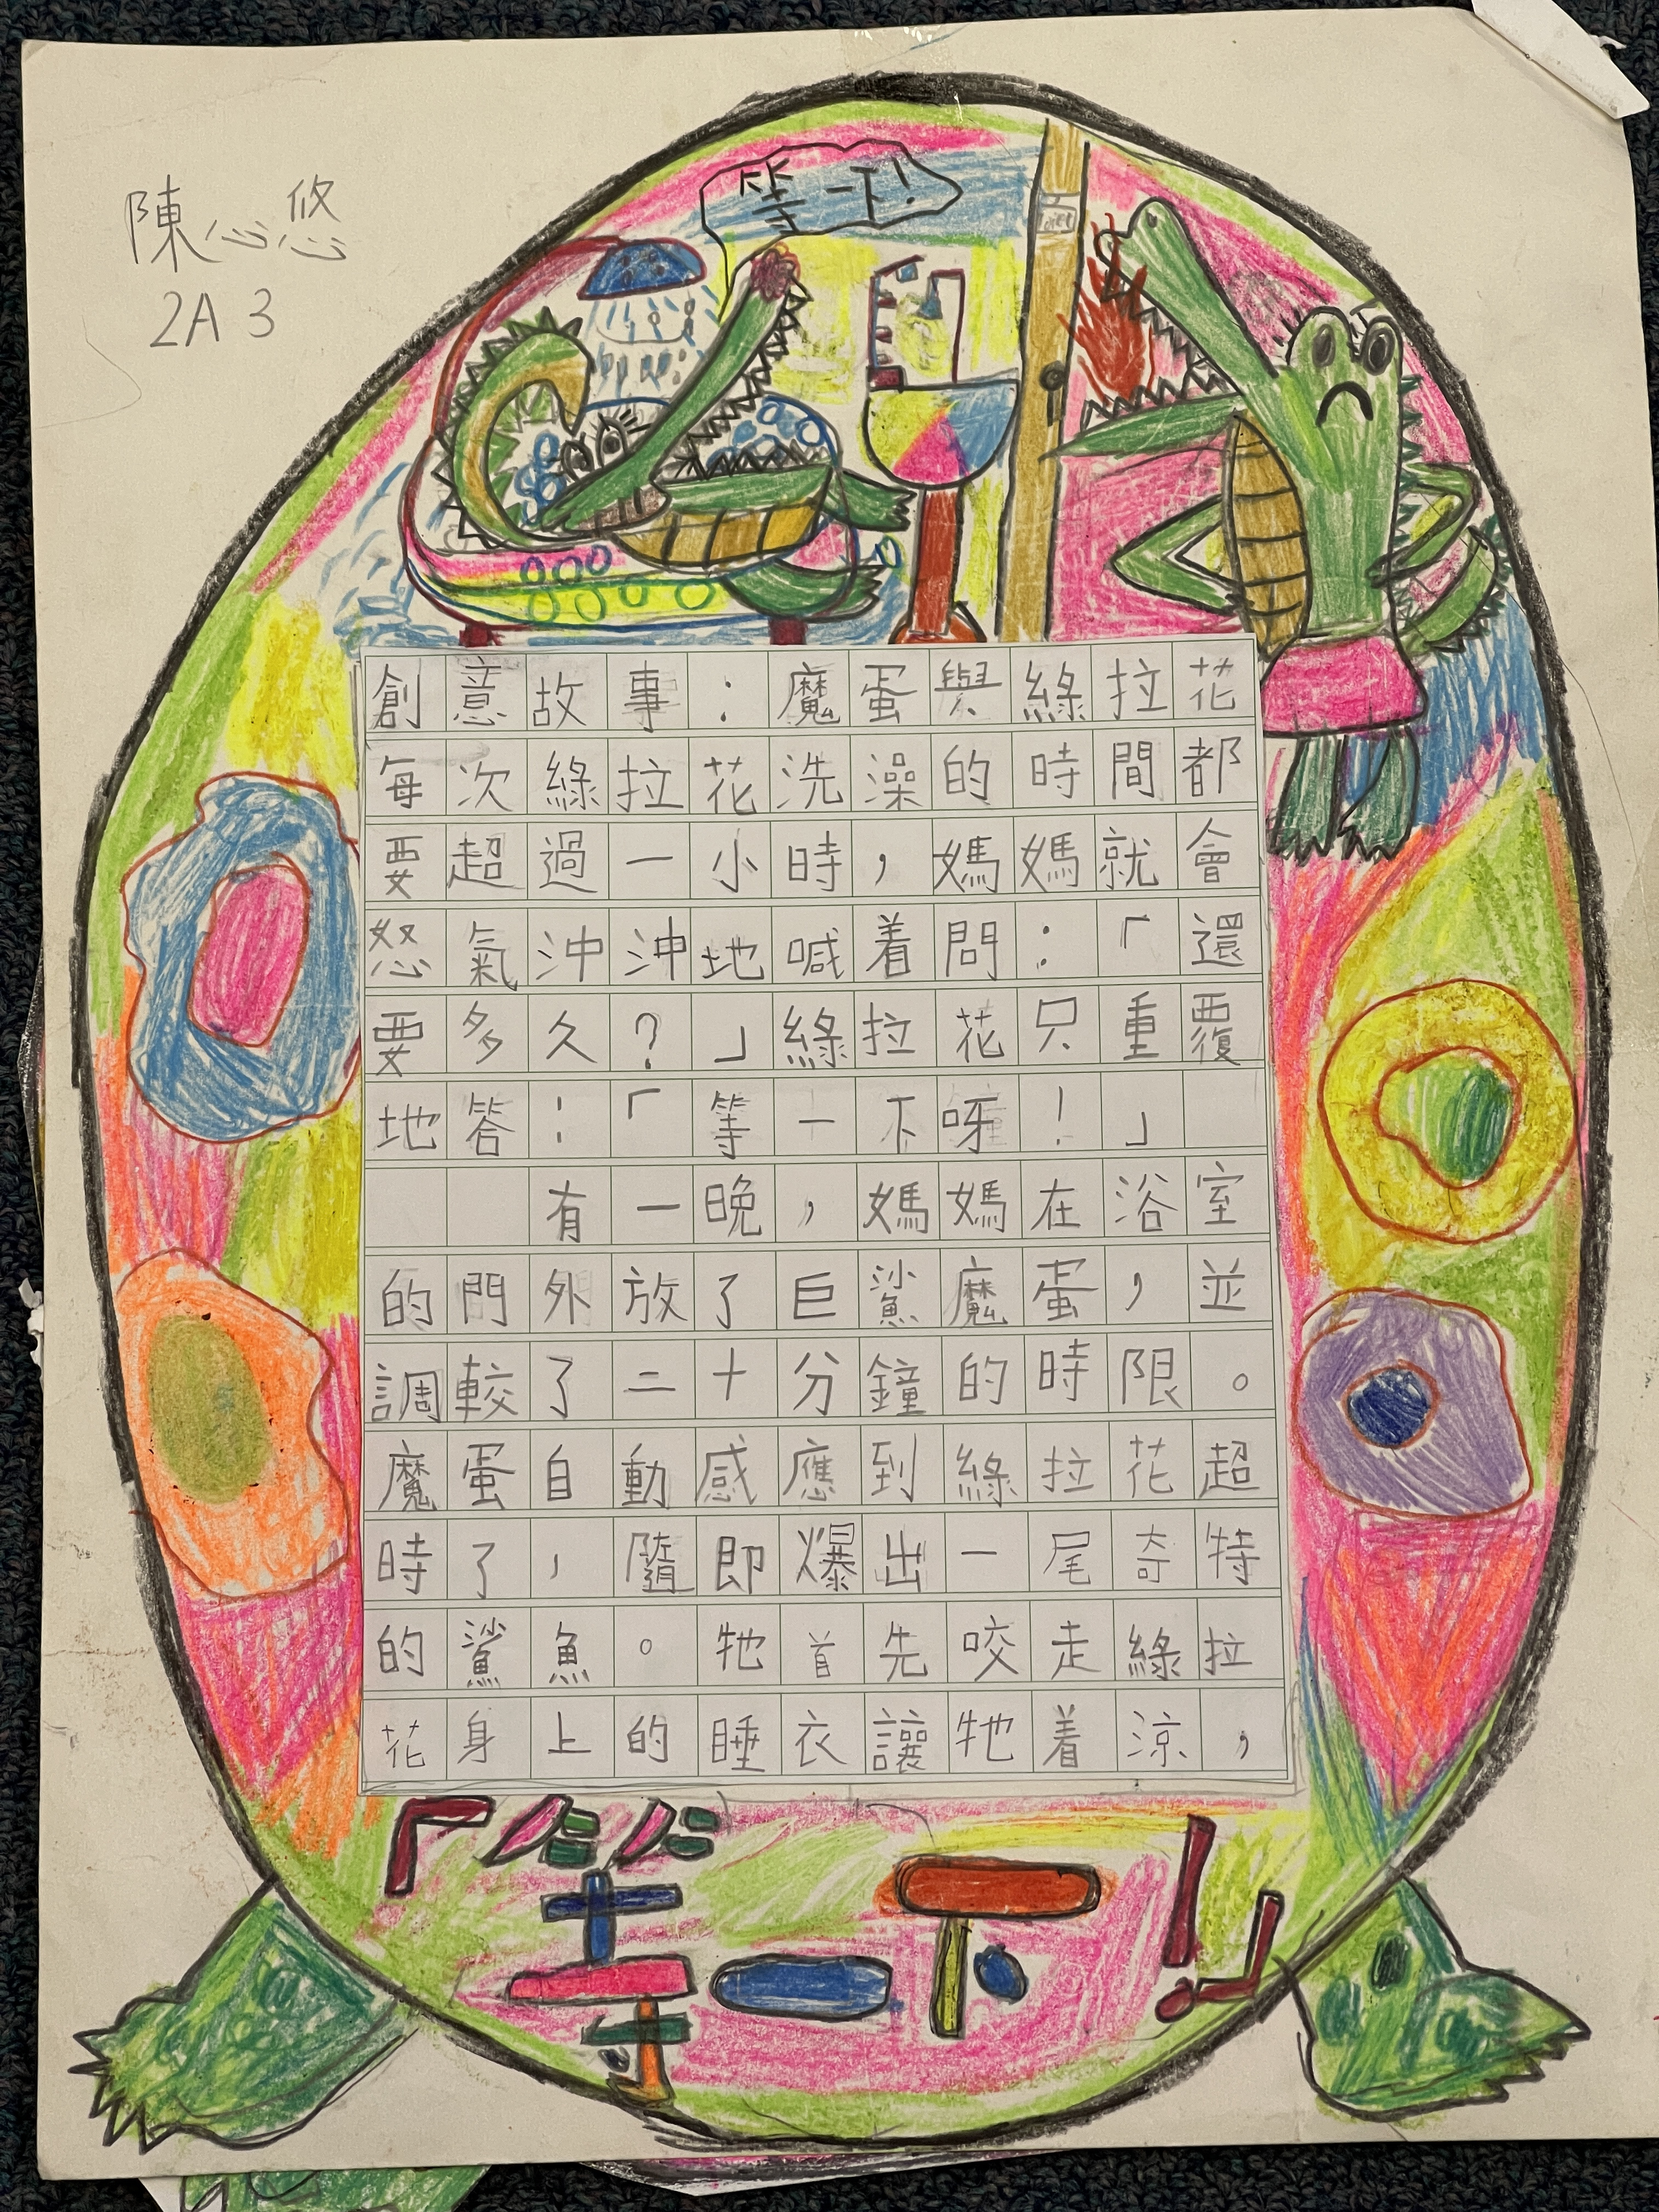 陳心悠
2A 3
等一下!
toilet
創意故事：魔蛋與綠拉花
每次綠拉花洗澡的時間都
要超過一小時，媽媽就會
怒氣沖沖地喊着問：「還
要多久？」綠拉花只重覆
地答：「等一下呀！」
有一晚，媽媽在浴室
的門外放了巨鯊魔蛋，並
調較了二十分鐘的時限。
魔蛋自動感應到綠拉花超
時了，隨即爆出一尾奇特
的鯊魚。牠首先咬走綠拉
花身上的睡衣讓牠着涼，
「等一下!」